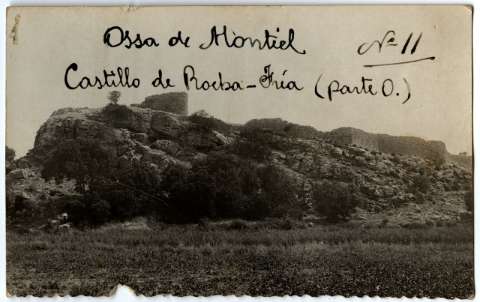 Ossa de Montiel
Nº 11
Castillo de Rocha-Fría (parte O.)